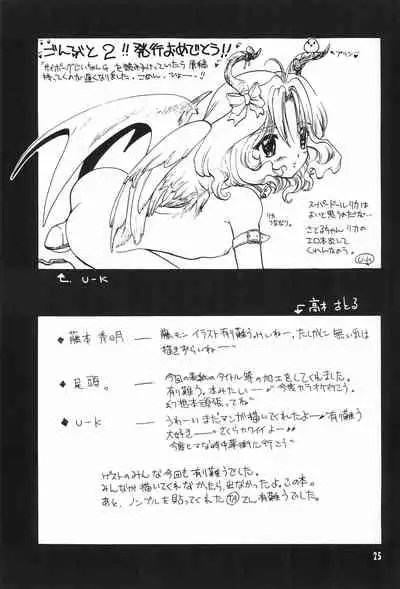 ごんぶと2!!発行おめでとう!!
「サイボーグじいちゃんG」を読みふけっていたら原稿
持ってくのが遅くなりました。ごめん。ひょー。!!
プリン
スーパードールリカは
よいと思うのだな…
さとるちゃんリカの
エロ本出して
くれんかなう。
U-K
U-K
高木さとる
藤本秀明 ── 藤モンイラスト有り難う。みいねー、たしかに無い乳は
描きずらいねー
足頭。 ── 今回の表紙のタイトル等の加工をしてくれました。
有り難う。本みたいー 今度カラオケ行こう。
幻想本頑張ってね。
U-K ── うわーいまたマンガ描いてくれたよー有り難う
大好きー さくらカワイイよー
今度ヒマな時中華街に行こう
ゲストのみんな今回も有り難うでした。
みんなが描いてくれなかたら、出なかったよ。この本。
あと、ノンブルを貼ってくれた さん有難うでした。
25